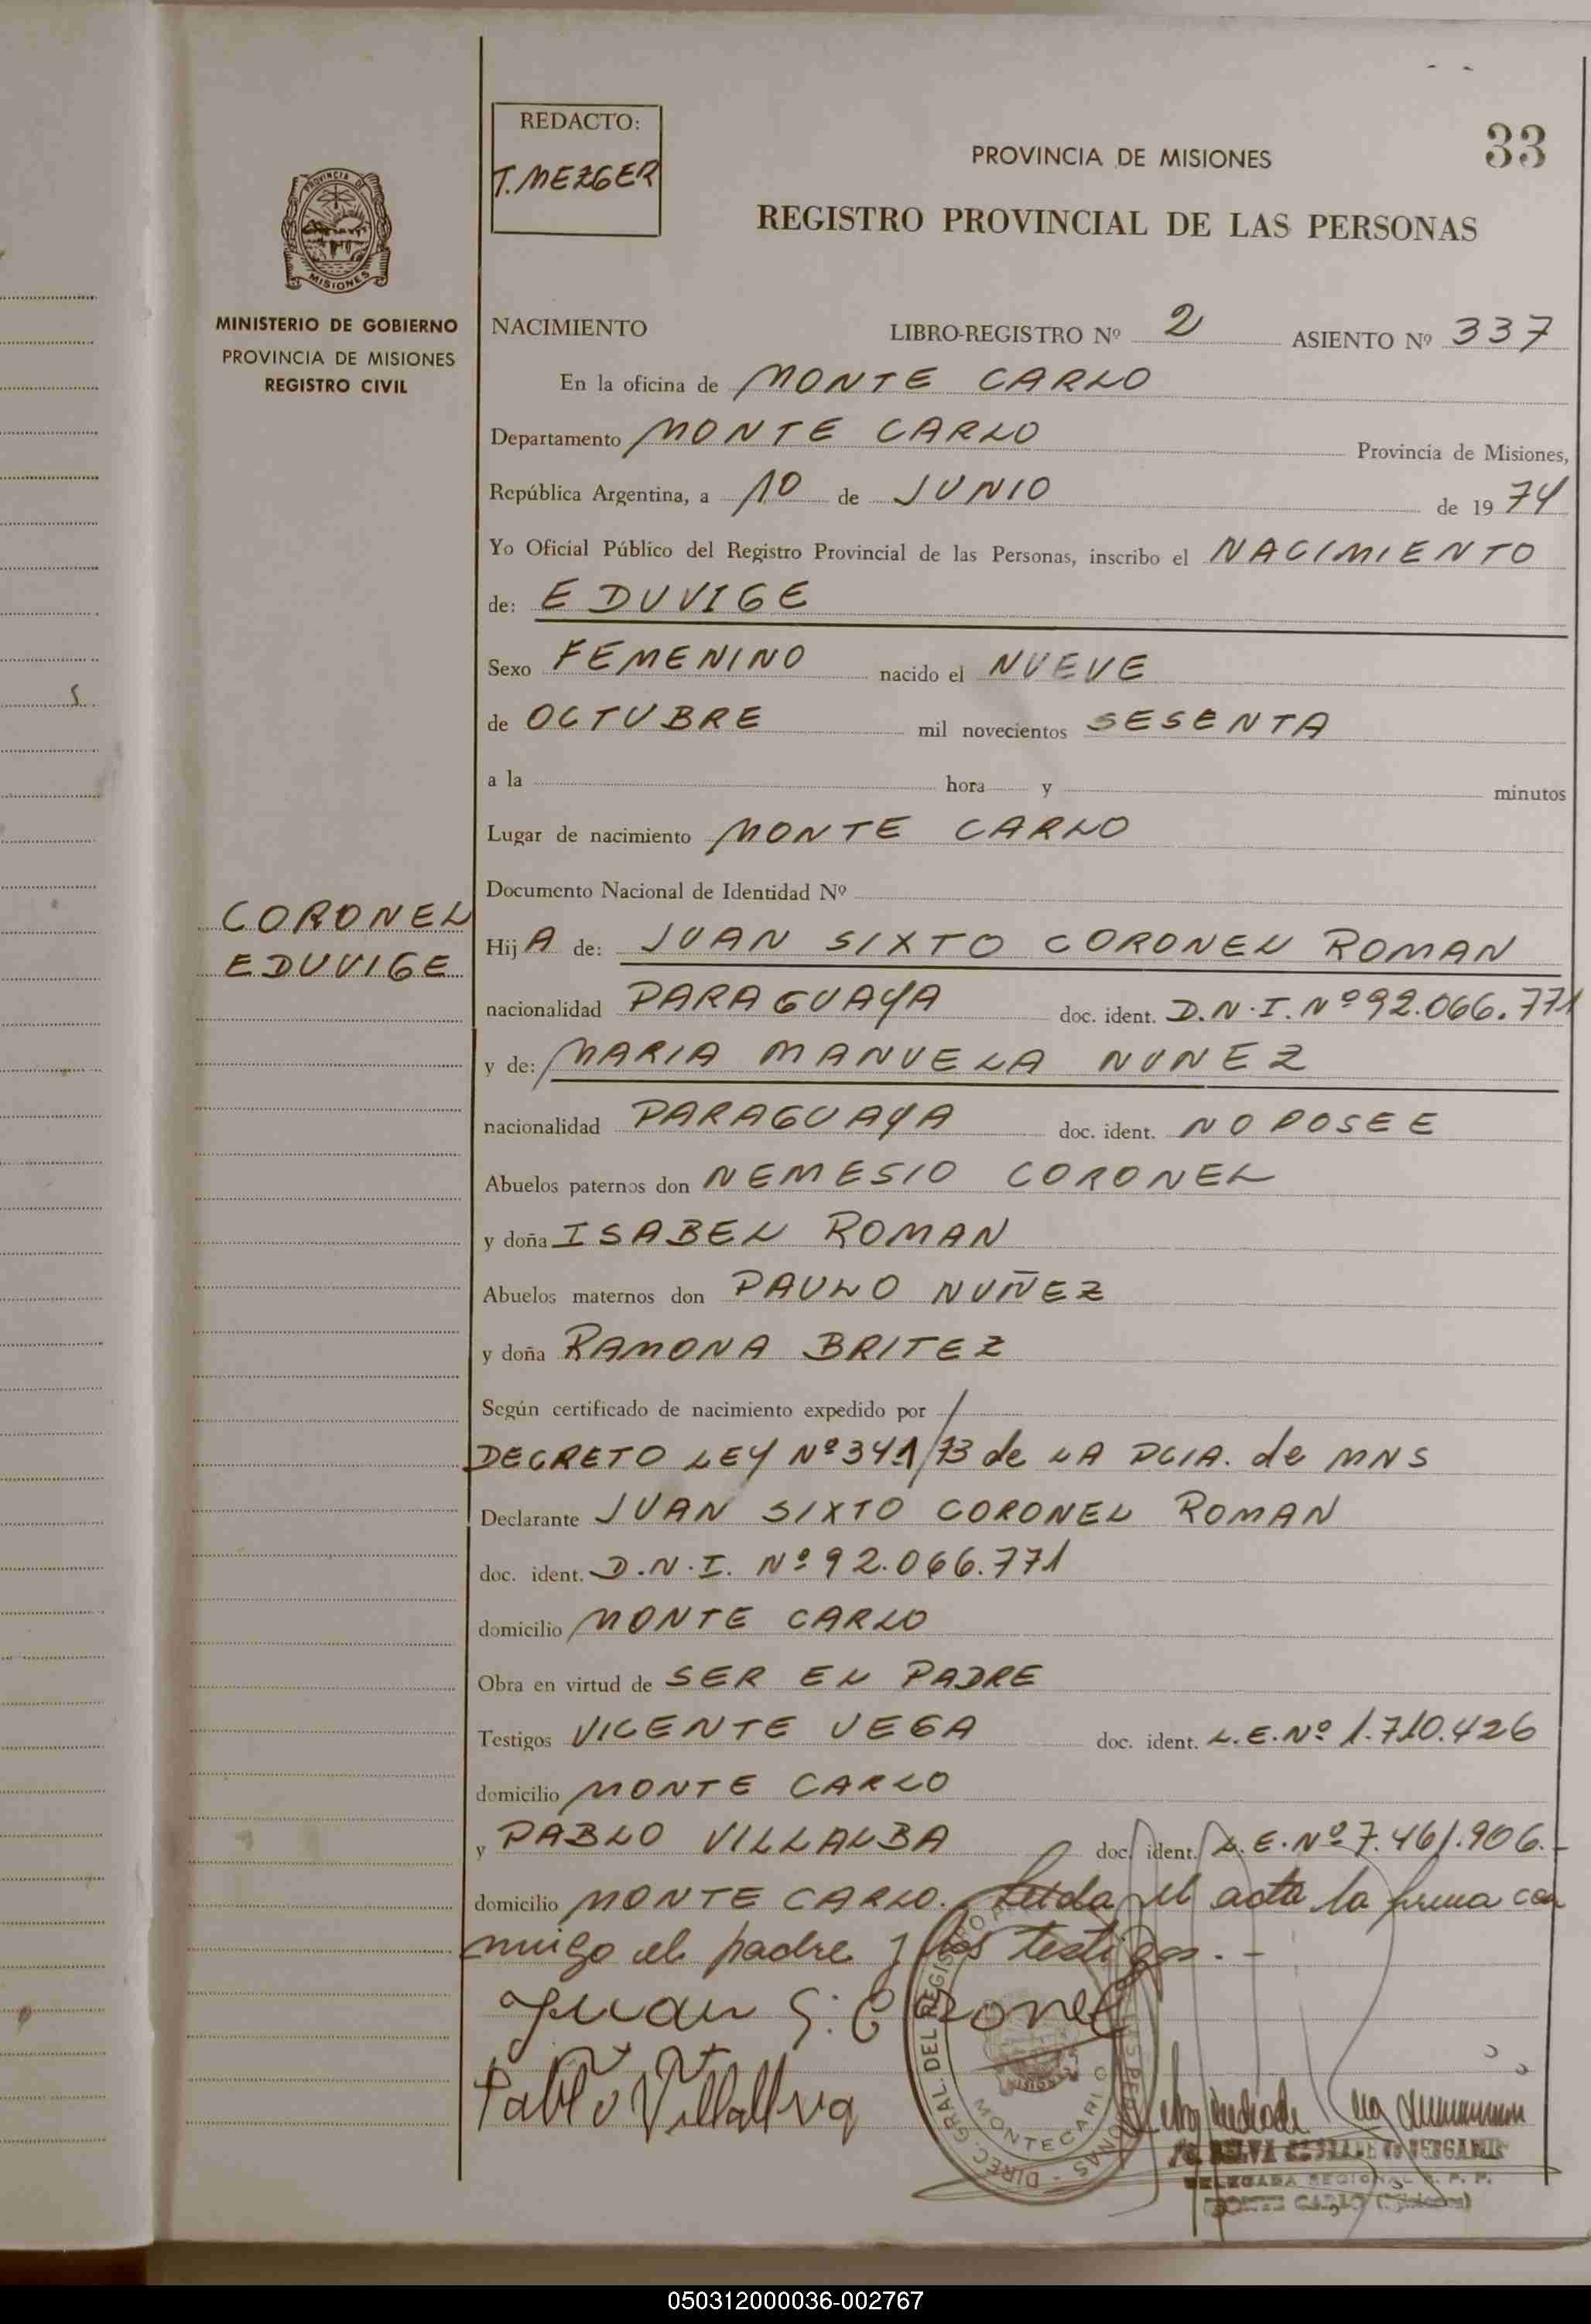 REDACTO:
T. MEZGER
33
PROVINCIA DE MISIONES
REGISTRO PROVINCIAL DE LAS PERSONAS
PROVINCIA DE
MISIONES
MINISTERIO DE GOBIERNO
PROVINCIA DE MISIONES
REGISTRO CIVIL
NACIMIENTO LIBRO-REGISTRO Nº 2 ASIENTO Nº 337
En la oficina de MONTE CARLO
Departamento MONTE CARLO Provincia de Misiones,
República Argentina, a 10 de JUNIO de 1974
Yo Oficial Público del Registro Provincial de las Personas, inscribo el NACIMIENTO
de: EDUVIGE
Sexo FEMENINO nacido el NUEVE
de OCTUBRE mil novecientos SESENTA
a la hora y minutos
Lugar de nacimiento MONTE CARLO
Documento Nacional de Identidad Nº
CORONEL
EDUVIGE
Hij A de: JUAN SIXTO CORONEL ROMAN
nacionalidad PARAGUAYA doc. ident. D.N.I. Nº 92.066.771
y de: MARIA MANUELA NUNEZ
nacionalidad PARAGUAYA doc. ident. NO POSEE
Abuelos paternos don NEMESIO CORONEL
y doña ISABEL ROMAN
Abuelos maternos don PAULO NUÑEZ
y doña RAMONA BRITEZ
Según certificado de nacimiento expedido por /
DECRETO LEY Nº 341/73 de LA PCIA. de MNS
Declarante JUAN SIXTO CORONEL ROMAN
doc. ident. D.N.I. Nº 92.066.771
domicilio MONTE CARLO
Obra en virtud de SER EL PADRE
Testigos VICENTE VEGA doc. ident. L.E.Nº 1.710.426
domicilio MONTE CARLO
y PABLO VILLALBA doc. ident. L.E.Nº 7.461.906.-
domicilio MONTE CARLO. Leida el acta la firma con
migo el padre y los testigos.-
Juan S. Coronel
Pablo Villalba
DIREC. GRAL. DEL REGISTRO
PERSONAS
MONTECARLO
MISIONES
DELEGADA REGIONAL R. P. P.
MONTE CARLO (Misiones)
050312000036-002767